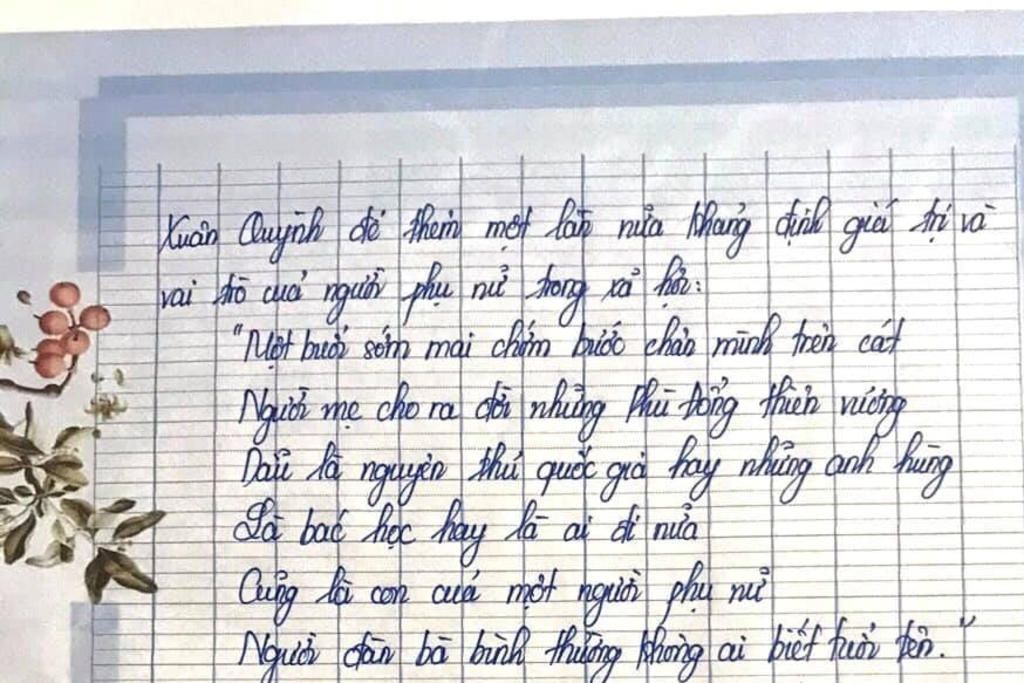 Xuân Quỳnh để thêm một lần nữa khẳng định giá trị và
vai trò của người phụ nữ trong xã hội:
"Một buổi sớm mai chớm bước chân mình trên cát
Người mẹ cho ra đời những Phù Đổng thiên vương
Dẫu là nguyên thứ quốc gia hay những anh hùng
Là bác học hay là ai đi nữa
Cũng là con của một người phụ nữ
Người đàn bà bình thường không ai biết tuổi tên."